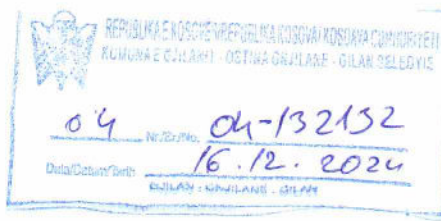 REPUBLIKA E KOSOVËS/REPUBLIKA KOSOVA/KOSOVA CUMHURİYETİ
KOMUNA E GJILANIT - OPŠTINA GNJILANE - GİLAN BELEDİYE
04 Nr./Br./No. 04-132132
Data/Datum/Tarih 16.12.2024
GJILAN - GNJILANE - GİLAN